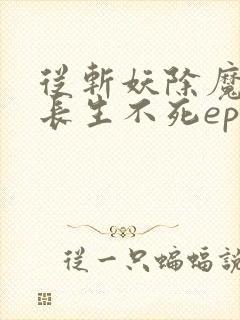 從斬妖除魔
長生不死ep
從一只蝙蝠說